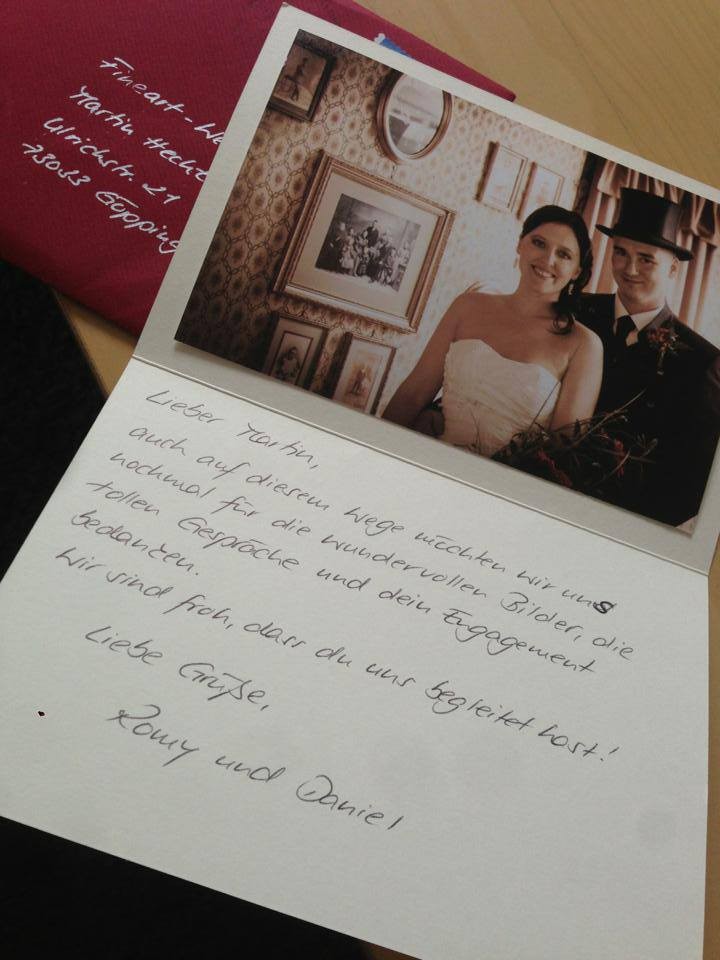 Fineart - We
Martin Hecht
Ulrichstr. 21
73033 Göpping
Lieber Martin,
auch auf diesem Wege möchten wir uns
nochmal für die wundervollen Bilder, die
tollen Gespräche und dein Engagement
bedanken.
Wir sind froh, dass du uns begleitet hast!
Liebe Grüße,
Romy und Daniel